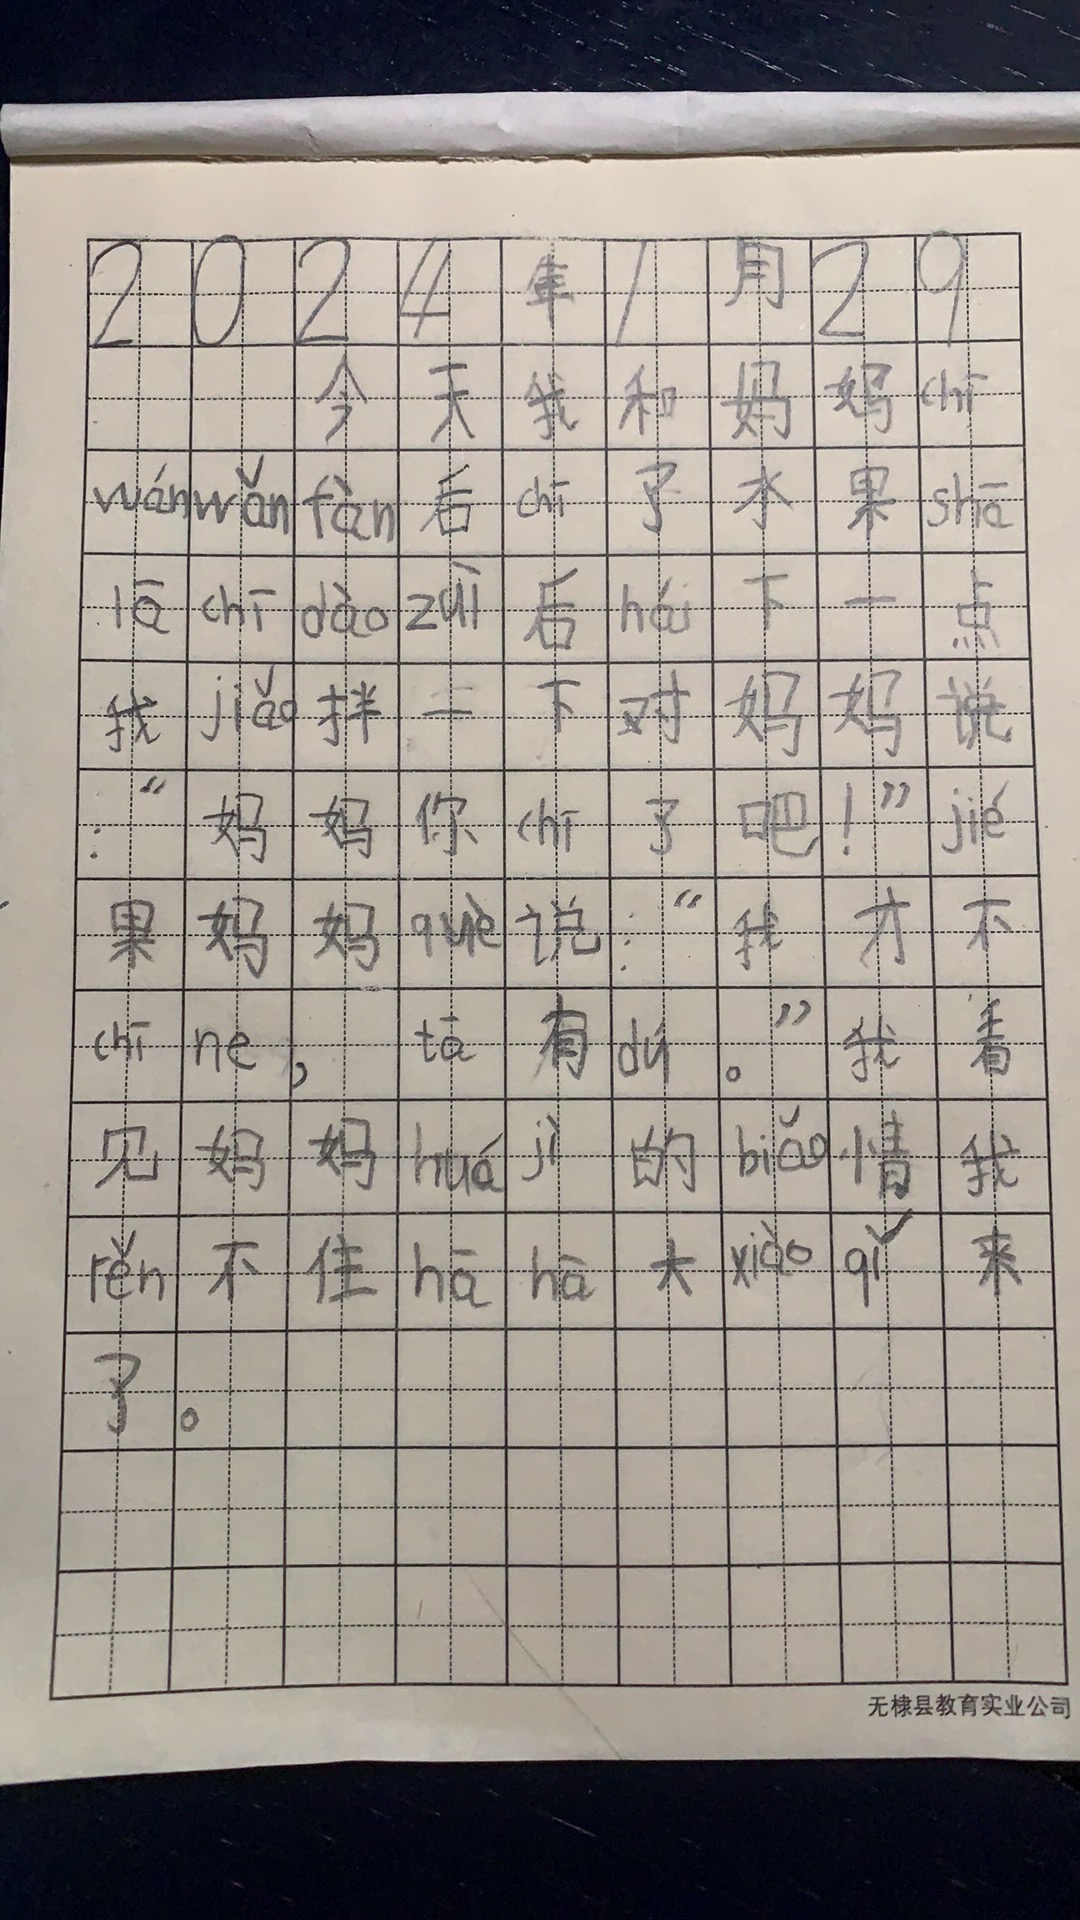 2024年1月29
今天我和妈妈chī
wánwǎnfàn后chī了水果shā
lāchīdàozuì后hái下一点
我jiǎo拌二下对妈妈说
：“妈妈你chī了吧！”jié
果妈妈què说：“我才不
chīne，tā有dú。”我看
见妈妈huájì的biǎo情我
rěn不住hāhā大xiàoqǐ来
了。
无棣县教育实业公司